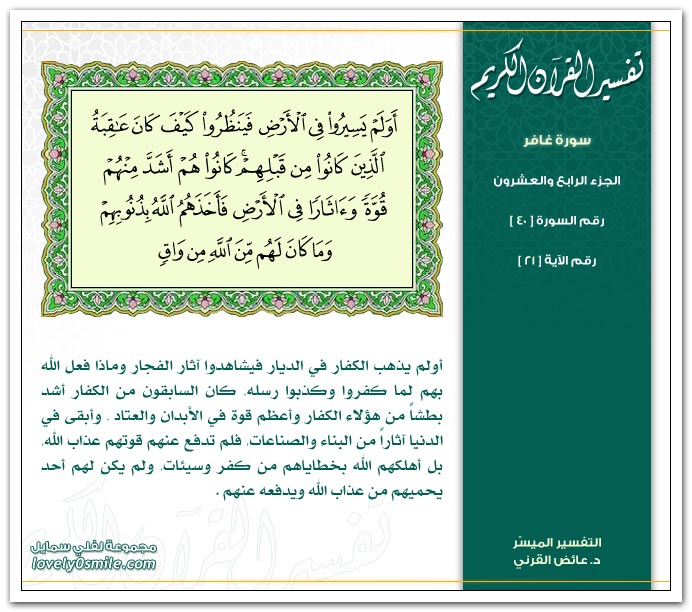 تفسير القرآن الكريم
سورة غافر
الجزء الرابع والعشرون
رقم السورة [ ٤٠ ]
رقم الآية [ ٢١ ]
أَوَلَمْ يَسِيرُوا۟ فِى ٱلْأَرْضِ فَيَنظُرُوا۟ كَيْفَ كَانَ عَـٰقِبَةُ
ٱلَّذِينَ كَانُوا۟ مِن قَبْلِهِمْ ۚ كَانُوا۟ هُمْ أَشَدَّ مِنْهُمْ
قُوَّةً وَءَاثَارًا فِى ٱلْأَرْضِ فَأَخَذَهُمُ ٱللَّهُ بِذُنُوبِهِمْ
وَمَا كَانَ لَهُم مِّنَ ٱللَّهِ مِن وَاقٍ
أولم يذهب الكفار في الديار فيشاهدوا آثار الفجار وماذا فعل الله
بهم لما كفروا وكذبوا رسله. كان السابقون من الكفار أشد
بطشاً من هؤلاء الكفار وأعظم قوة في الأبدان والعتاد . وأبقى في
الدنيا آثاراً من البناء والصناعات. فلم تدفع عنهم قوتهم عذاب الله.
بل أهلكهم الله بخطاياهم من كفر وسيئات. ولم يكن لهم أحد
يحميهم من عذاب الله ويدفعه عنهم .
التفسير الميسّر
د. عائض القرني
مجموعة لفلي سمايل
lovely0smile.com
تفسير القرآن الكريم